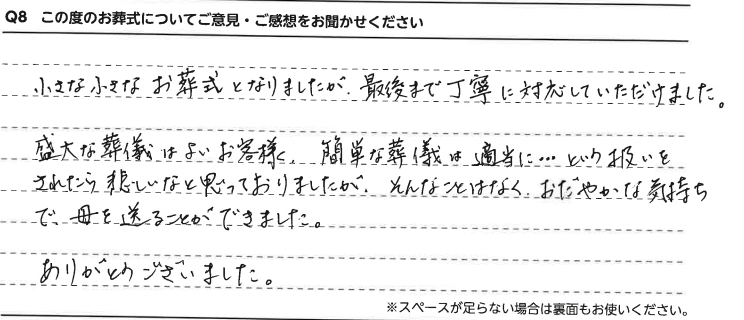 Q8 この度のお葬式についてご意見・ご感想をお聞かせください
小さな小さな お葬式となりましたが、最後まで丁寧に対応していただけました。
盛大な葬儀はよいお客様、簡単な葬儀は適当に…という扱いを
されたら悲しいなと思っておりましたが、そんなことはなく、おだやかな気持ち
で、母を送ることができました。
ありがとうございました。
※スペースが足らない場合は裏面もお使いください。